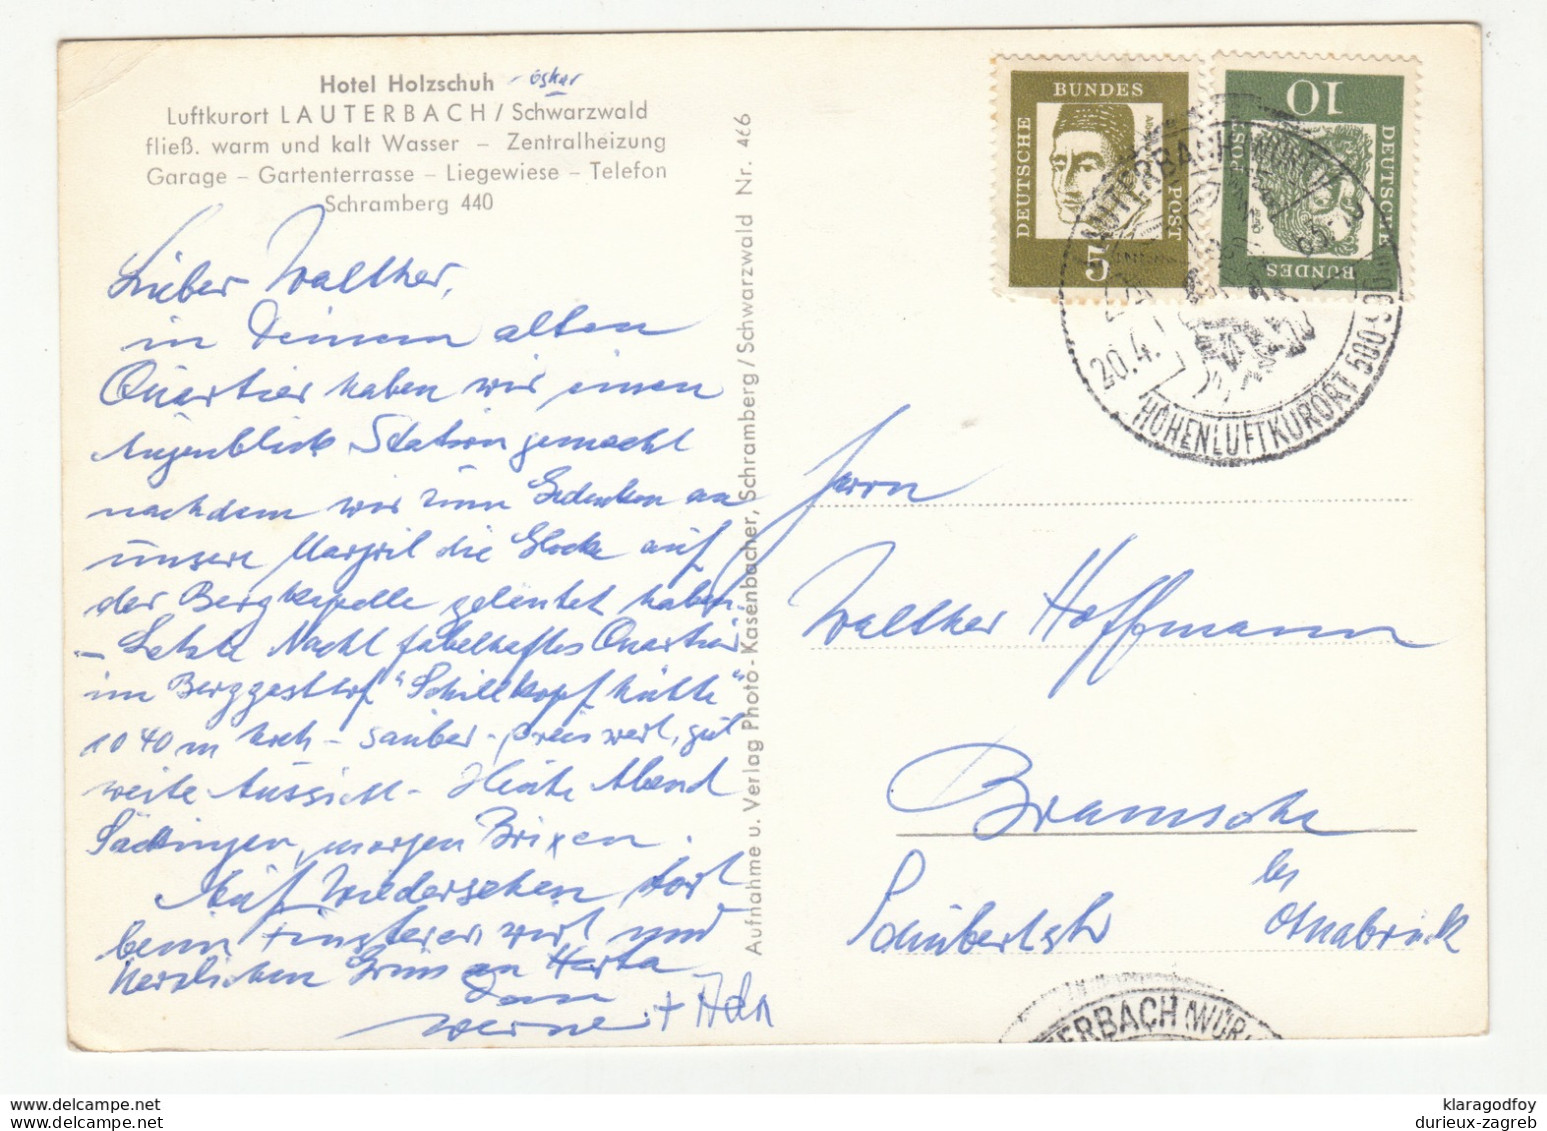 Hotel Holzschuh - Oskar
Luftkurort LAUTERBACH / Schwarzwald
fließ. warm und kalt Wasser – Zentralheizung
Garage – Gartenterrasse – Liegewiese – Telefon
Schramberg 440
Lieber Walther,
in Deinem alten
Quartier haben wir einen
Augenblick Station gemacht
nachdem wir zum Gedenken an
unsere Margril die Glocke auf
der Bergkapelle geläutet haben.
– Letzte Nacht fabelhaftes Quartier
im Berggasthof "Schillkopfhütte"
1040 m hoch - sauber - preiswert, gut
weite Aussicht - Heute Abend
Säckingen, morgen Brixen.
Auf Wiedersehen dort
beim Finsterwirt und
herzlichen Gruss an Herta
Dein
Werner +
Aufnahme u. Verlag Photo-Kasenbacher, Schramberg / Schwarzwald Nr. 466
DEUTSCHE BUNDES POST 5
DEUTSCHE BUNDES POST 10
LAUTERBACH (WÜRTT)
20.4.
HÖHENLUFTKURORT 500-900
Herrn
Walther Hoffmann
Bramsche
bei
Schubertstr Osnabrück
TERBACH (WÜRT
klaragodfoy
durieux-zagreb